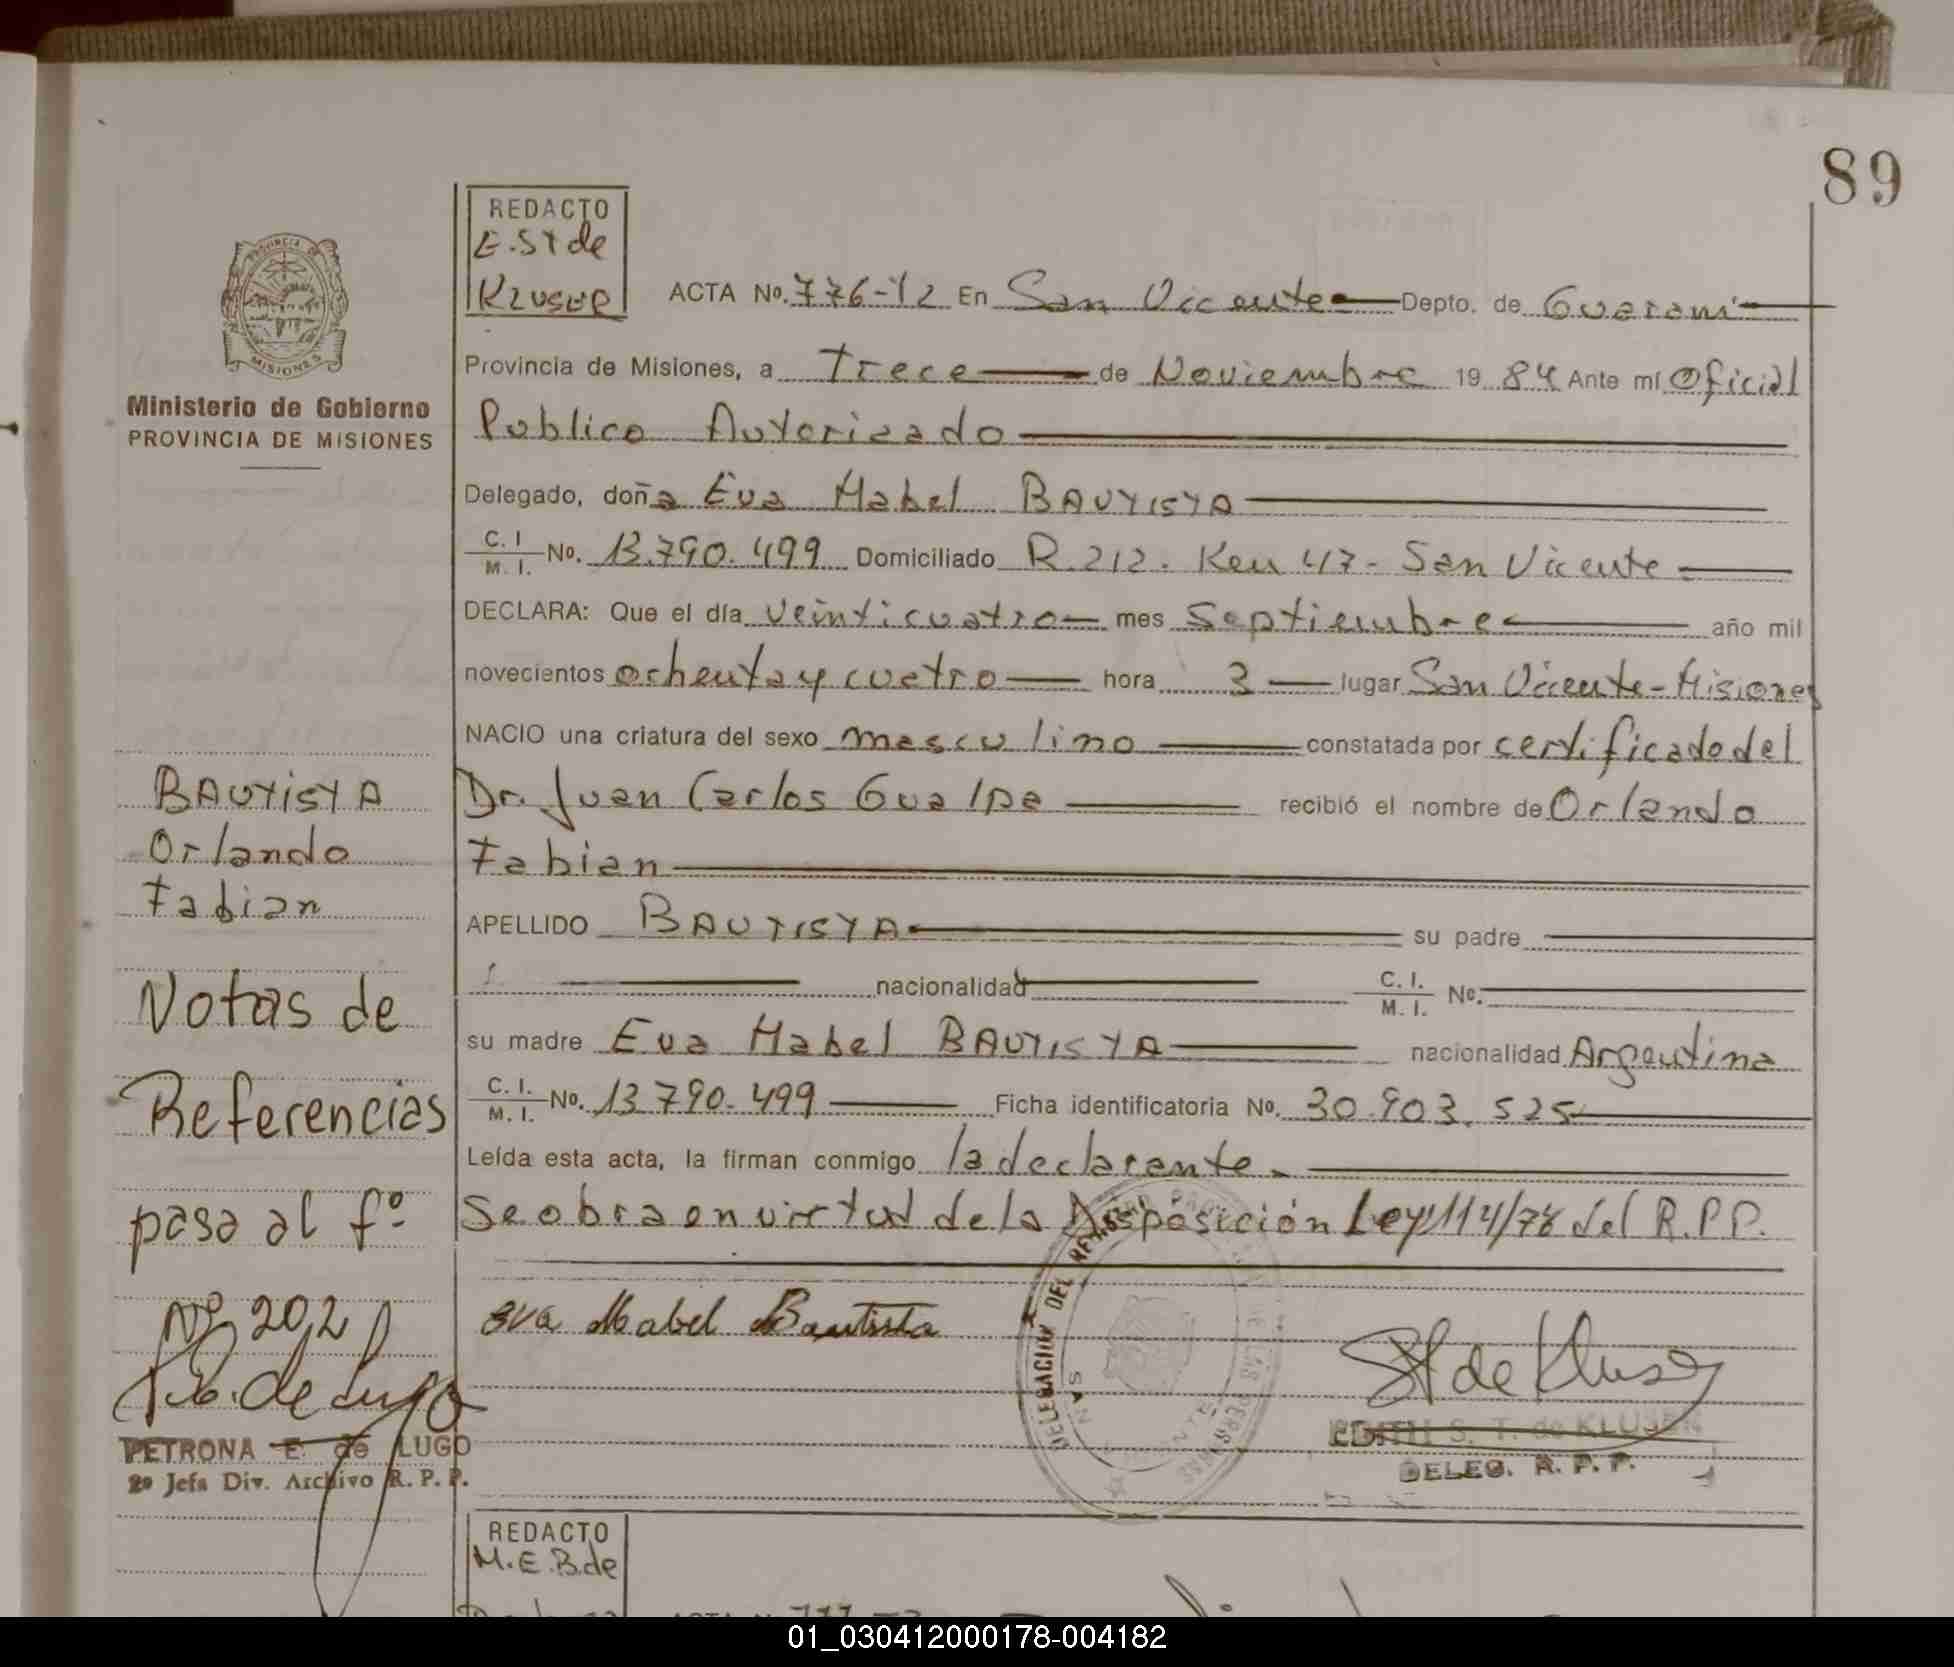 89
REDACTO
E. ST de
KLUSER
ACTA No. 776-T2 En San Vicente Depto. de Guarani
Provincia de Misiones, a Trece de Noviembre 19 84 Ante mí Oficial
Publico Autorizado
Delegado, doña Eva Mabel BAUTISTA
C. I / M. I. No. 13.790.499 Domiciliado R.212. Km 47- San Vicente
DECLARA: Que el día veinticuatro mes Septiembre año mil
novecientos ochenta y cuatro hora 3 lugar San Vicente - Misiones
NACIO una criatura del sexo masculino constatada por certificado del
Dr. Juan Carlos Gualpa recibió el nombre de Orlando
Fabian
APELLIDO BAUTISTA su padre
nacionalidad C. I. / M. I. No.
su madre Eva Mabel BAUTISTA nacionalidad Argentina
C. I. / M. I. No. 13 790.499 Ficha identificatoria No. 30.903.525
Leída esta acta, la firman conmigo la declarante.
Se obra en virtud de la Disposición Ley 114/78 del R.P.P.
Eva Mabel Bautista
ST de Kluser
EDITH S. T. de KLUSER
DELEG. R. P. P.
DELEGACION DEL REGISTRO PROVINCIAL DE LAS PERSONAS
SAN VICENTE
PROVINCIA DE
MISIONES
Ministerio de Gobierno
PROVINCIA DE MISIONES
BAUTISTA
Orlando
Fabian
Notas de
Referencias
pasa al fº
Nº 202
P. E. de Lugo
PETRONA E. de LUGO
2º Jefa Div. Archivo R. P. P.
REDACTO
M.E.B.de
01_030412000178-004182